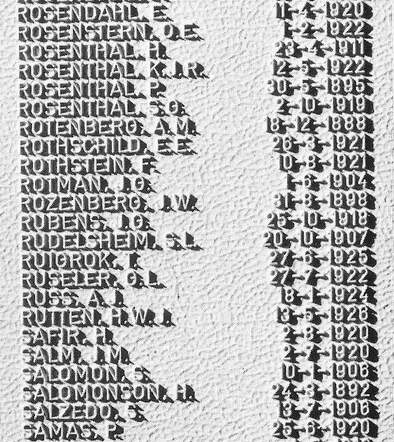 ROSENDAHL, E. 11-4-1920
ROSENSTERN, O.E. 1-2-1922
ROSENTHAL, H. 23-4-1911
ROSENTHAL, K.J.R. 12-5-1922
ROSENTHAL, P. 30-5-1895
ROSENTHAL, S.G. 2-10-1919
ROTENBERG, A.M. 18-12-1888
ROTHSCHILD, E.E. 26-3-1921
ROTHSTEIN, F. 10-8-1921
ROTMAN, J.G. 1-6-1904
ROZENBERG, J.W. 31-8-1898
RUBENS, J.G. 25-10-1918
RUDELSHEIM, S.L. 20-10-1907
RUIGROK, T. 27-6-1925
RUSELER, G.L. 27-7-1922
RUSS, A.J. 8-1-1924
RUTTEN, H.W.J. 13-5-1926
SAFIR, H. 2-8-1920
SALM, J.M. 2-7-1920
SALOMON, S. 10-1-1906
SALOMONSON, H. 24-3-1892
SALZEDO, S. 13-7-1906
SAMAS, P. 25-6-1920